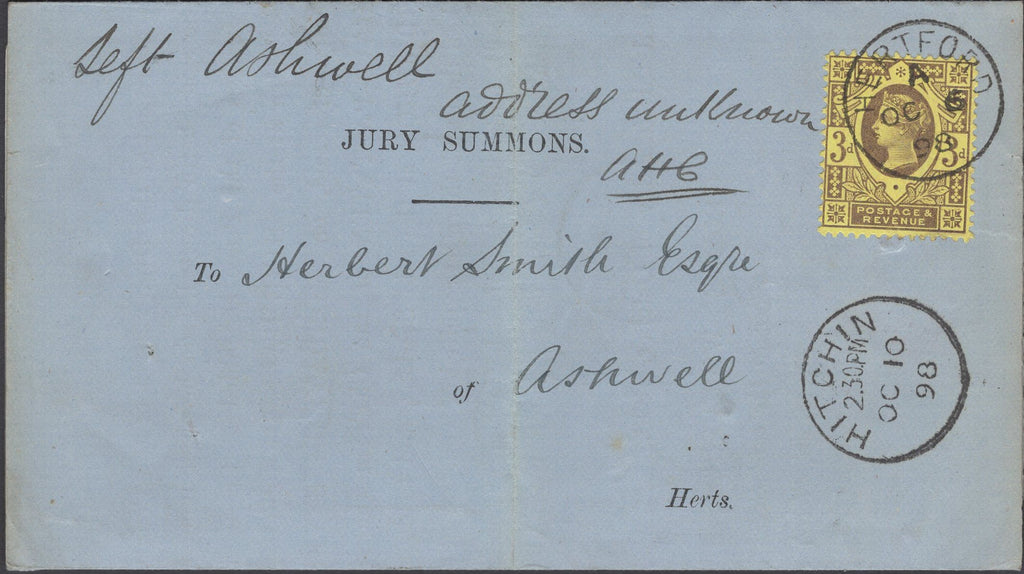 left Ashwell
address unknown
JURY SUMMONS.
AHC
To Herbert Smith Esqre
of Ashwell
Herts.
HERTFORD
A
OC 6
98
3d 3d
POSTAGE &
REVENUE
HITCHIN
2.30PM
OC 10
98